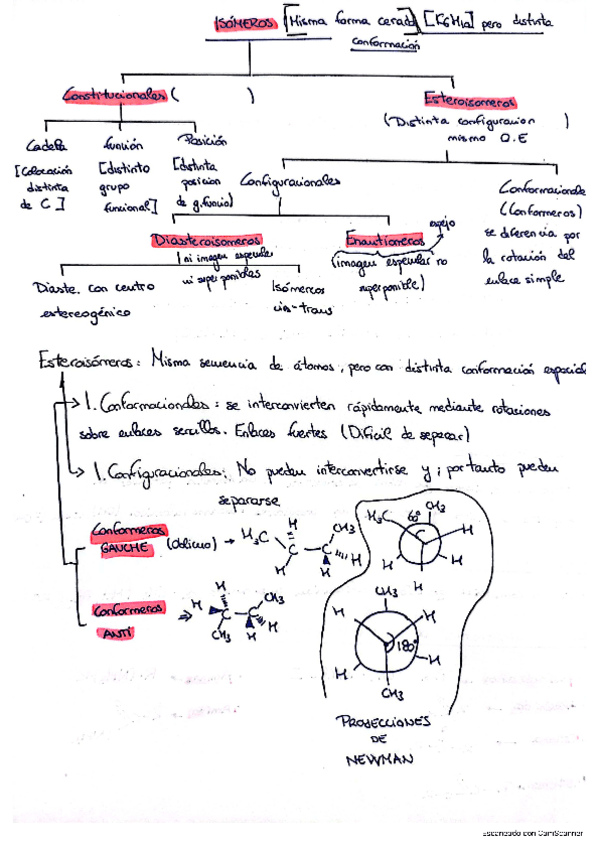 ISÓMEROS [Misma forma cerada] [C6H12] pero distinta
conformación
Constitucionales ( )
Esteroisomeros
(Distinta configuracion )
mismo O.E
Cadena
función
Posición
[Colocación
distinta
de C ]
[distinto
grupo
funcional]
[distinta
posición
de g.funcio]
Configuracionales
Conformacionale
(Conformeros)
se diferencia por
la rotación del
enlace simple
Diasteroisomeros
[ni imagen especular
ni superponibles
Enautiomeros
espejo
(imagen especular no
superponible)
Diaste. con centro
estereogénico
Isómeros
cis-trans
Esteroisómeros: Misma secuencia de átomos, pero con distinta conformación espacial
1. Conformacionales: se interconvierten rápidamente mediante rotaciones
sobre enlaces sencillos. Enlaces fuertes (Dificil de separar)
1. Configuracionales: No pueden interconvertirse y, por tanto pueden
separarse
Conformeros
GAUCHE (Oblicuo)
H3C C C CH3 H H H H
H3C 60° CH3 H H H H
Conformeros
ANTI
H H C C CH3 CH3 H H
CH3 H H 180° H H CH3
PROYECCIONES
DE
NEWMAN
Escaneado con CamScanner